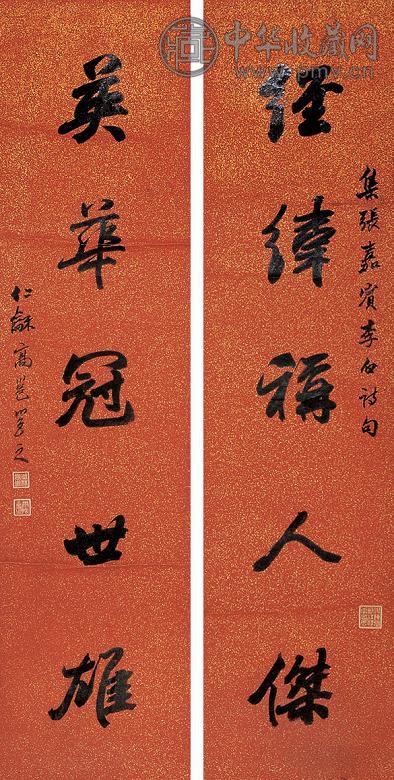 中华收藏网
經緯稱人傑
集張嘉賓李白詩句
英華冠世雄
仁龢高邕